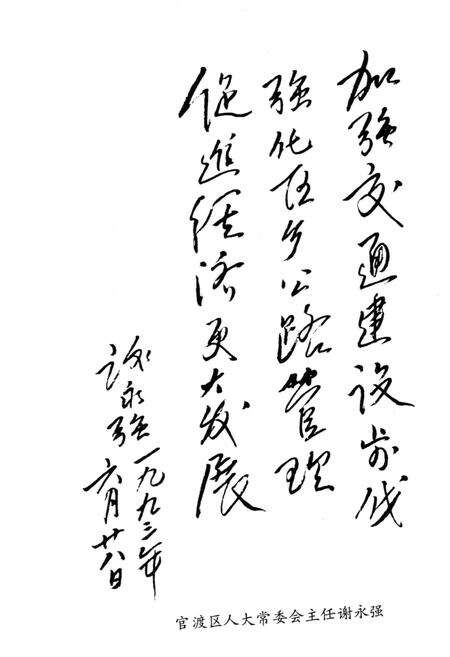 加强交通建设步伐
强化乡公路管理
促進经济更大发展
谢永强一九九三年
六月廿八日
官渡区人大常委会主任谢永强